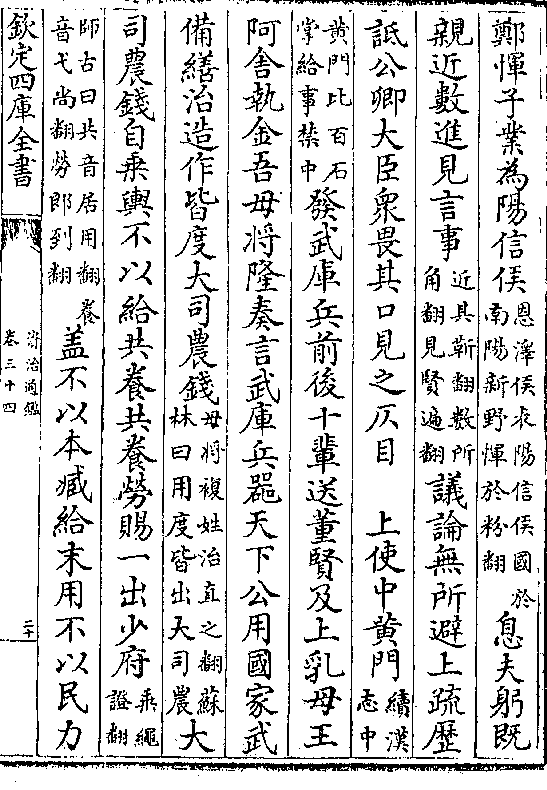 鄭惲子業為陽信侯恩澤侯表陽信侯國於南陽新野惲於粉翻息夫躬既
親近數進見言事近其靳翻數所角翻見賢遍翻議論無所避上疏歴
詆公卿大臣衆畏其口見之仄目　上使中黄門續漢志中
黄門比百石掌給事禁中發武庫兵前後十輩送董賢及上乳母王
阿舍執金吾毋將隆奏言武庫兵器天下公用國家武
備繕治造作皆度大司農錢毋將複姓治直之翻蘇林曰用度皆出大司農大
司農錢自乘輿不以給共養共養勞賜一出少府乘繩證翻
師古曰共音居用翻養音弋尚翻勞郎到翻蓋不以本臧給末用不以民力
欽定四庫全書
資治通鑑
卷三十四
二十